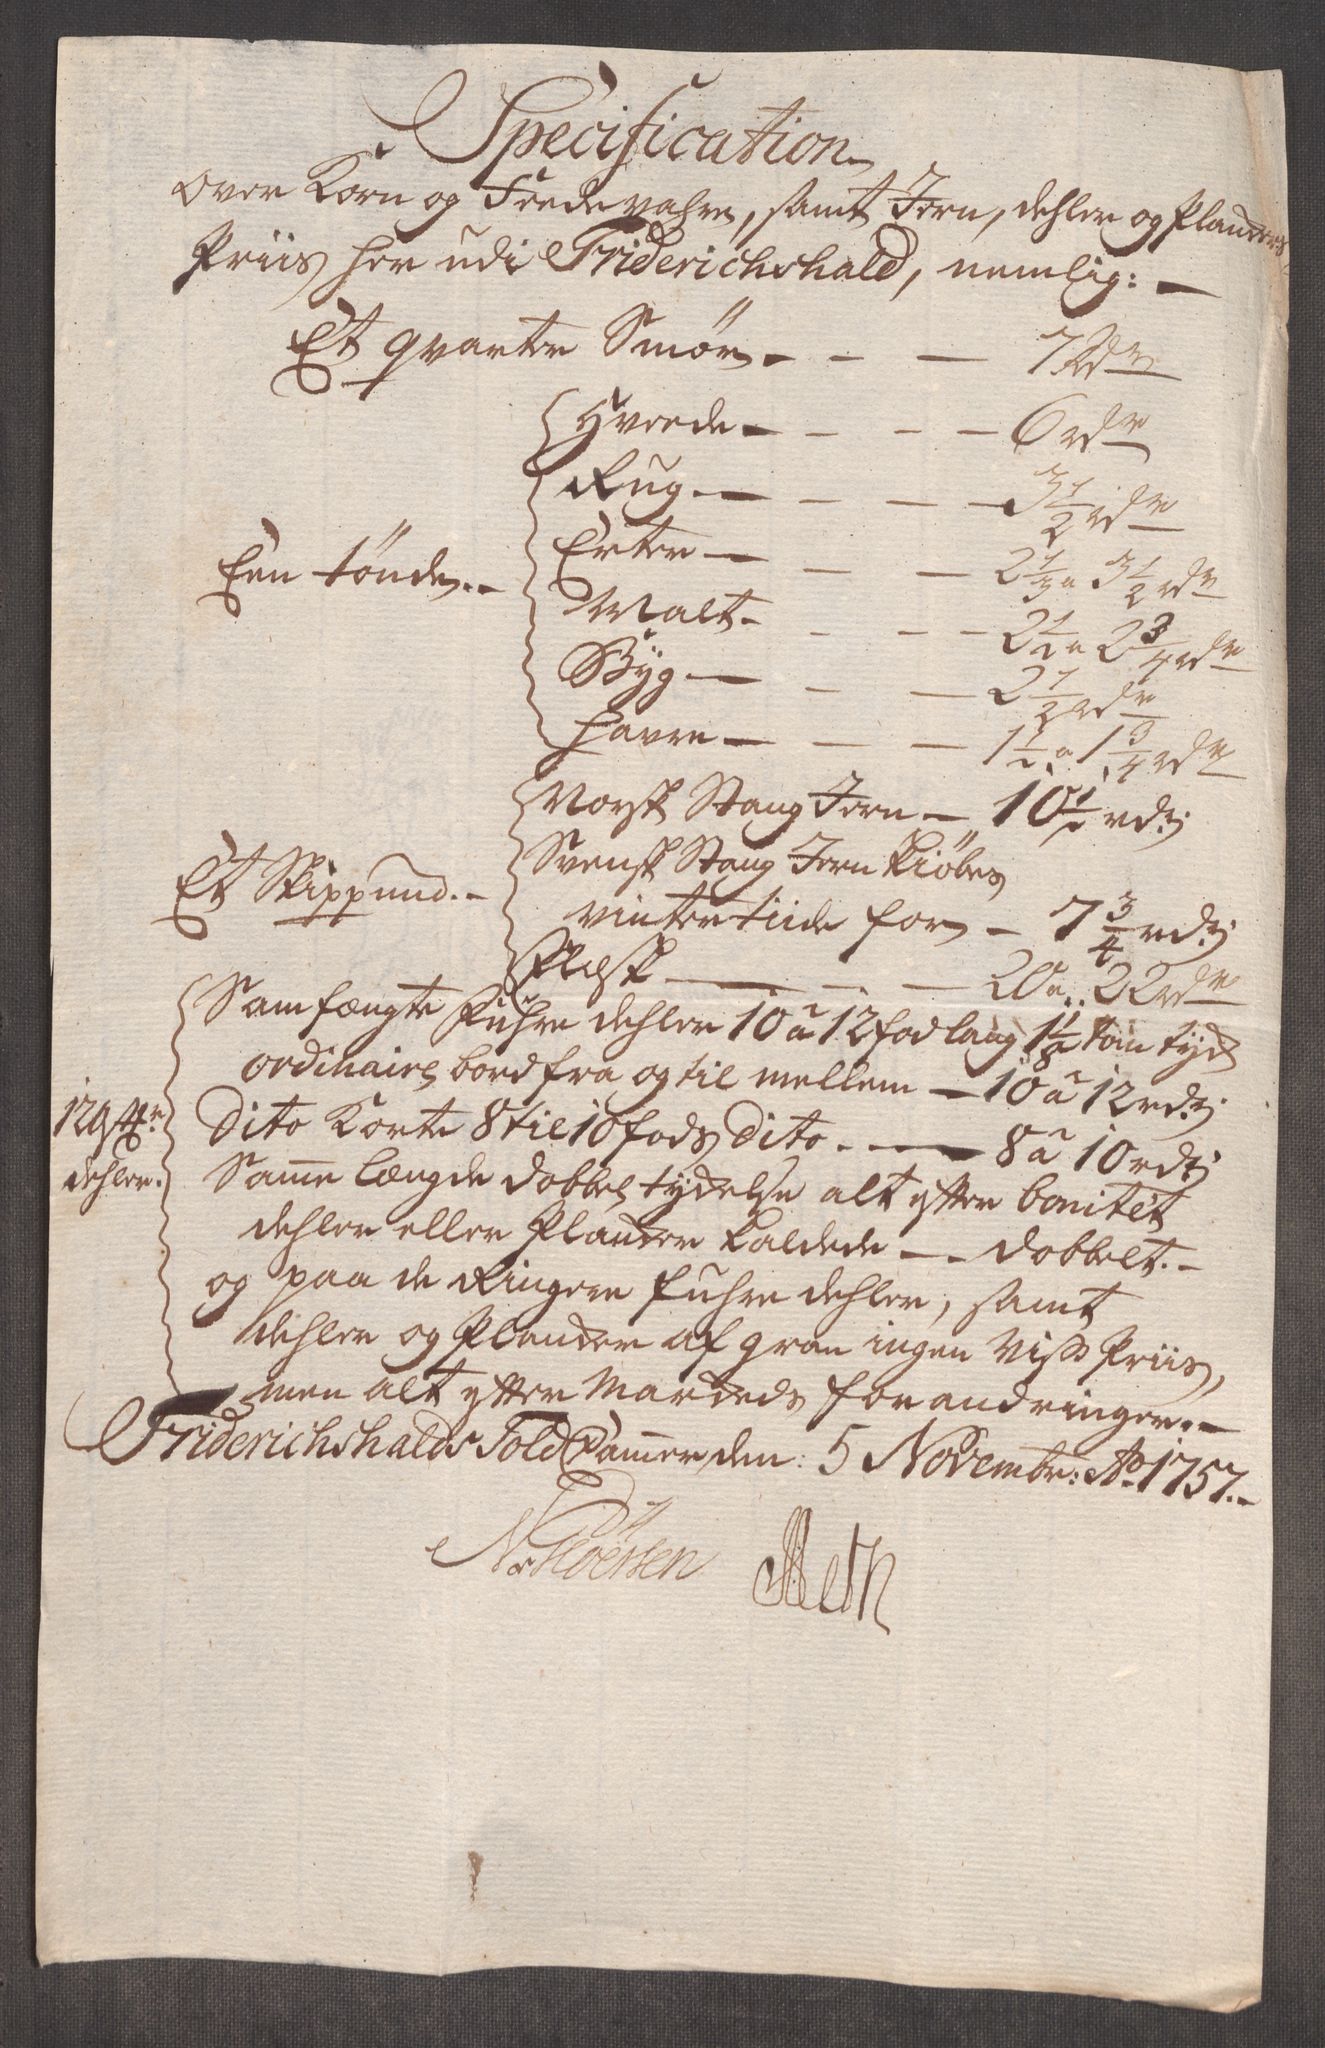 Specification
Over Korn og Feede vahre, samt Jern, dehler og Plancker
Priis her udi Friderichshald, nemlig: —
Et qvarter Smør — — — 7 Rdr
Hvede — — — — 6 rdr
Rug — — — — 3 1/2 rdr
Erter — — — 2 1/2 a 3 1/2 rdr
Een tönde. —
Malt — — — 2 1/2 a 2 3/4 rdr
Byg — — — 2 1/2 rdr
Havre — — — 1 1/2 a 1 3/4 rdr
Norsk Stang Jern — 10 1/2 rdr
Svensk Stang Jern kiöbes
Et Skippund. —
vinter tiide for — 7 3/4 rdr
Flesk — — — 20 a 22 rdr
Samfængte Fuhre dehler 10 a 12 fod lang 1 1/8 tom tyck
ordinaire bord fra og til mellem — 10 a 12 rdr
Dito Korte 8 til 10 fods Dito. — 8 a 10 rdr
dehler.
Samme længde dobbel tydelse alt efter bonitet
dehler eller Plancker kaldede — dobbelt. —
og paa de Ringere fuhre dehler, samt
dehler og Plancker af gran ingen viss Priis,
men alt efter Marckeds forandringer. —
Friderichshalds Told Cammer den: 5 Novembr: Ao 1757. —